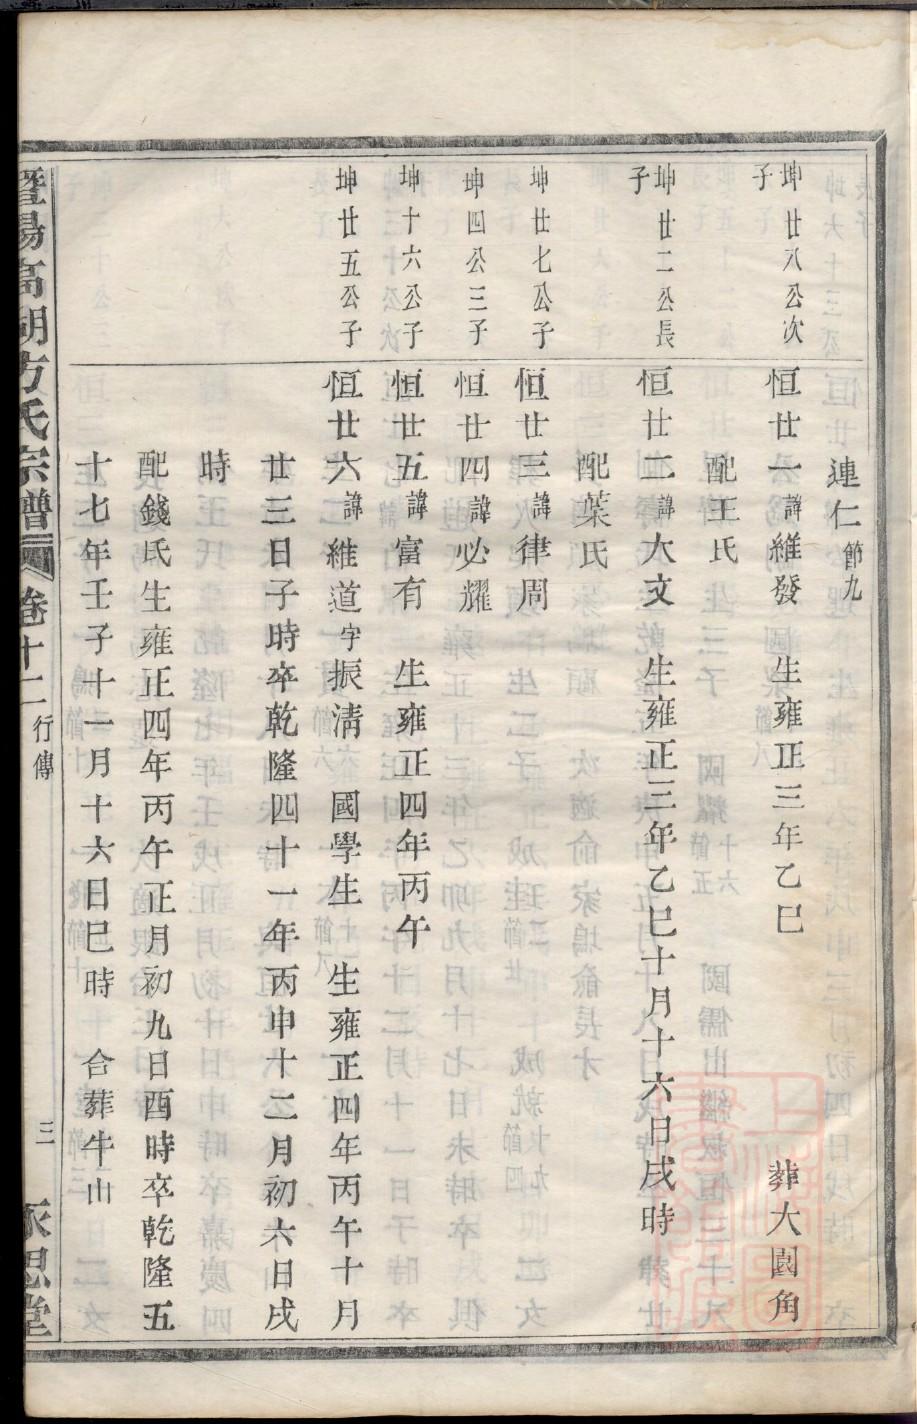 連仁節九
坤廿八公次子
恒廿一諱維發　生雍正三年乙巳　葬大園角
配王氏
坤廿二公長子
恒廿二諱大文　生雍正三年乙巳十月十六日戌時
配葉氏
坤廿七公子
恒廿三諱律周
坤四公三子
恒廿四諱必耀
坤十六公子
恒廿五諱富有　生雍正四年丙午
坤廿五公子
恒廿六諱維道字振清　國學生　生雍正四年丙午十月
廿三日子時卒乾隆四十一年丙申十二月初六日戌
時
配錢氏生雍正四年丙午正月初九日酉時卒乾隆五
十七年壬子十一月十六日巳時　合葬牛山
暨陽高湖方氏宗譜　卷十二　行傳　三　永思堂